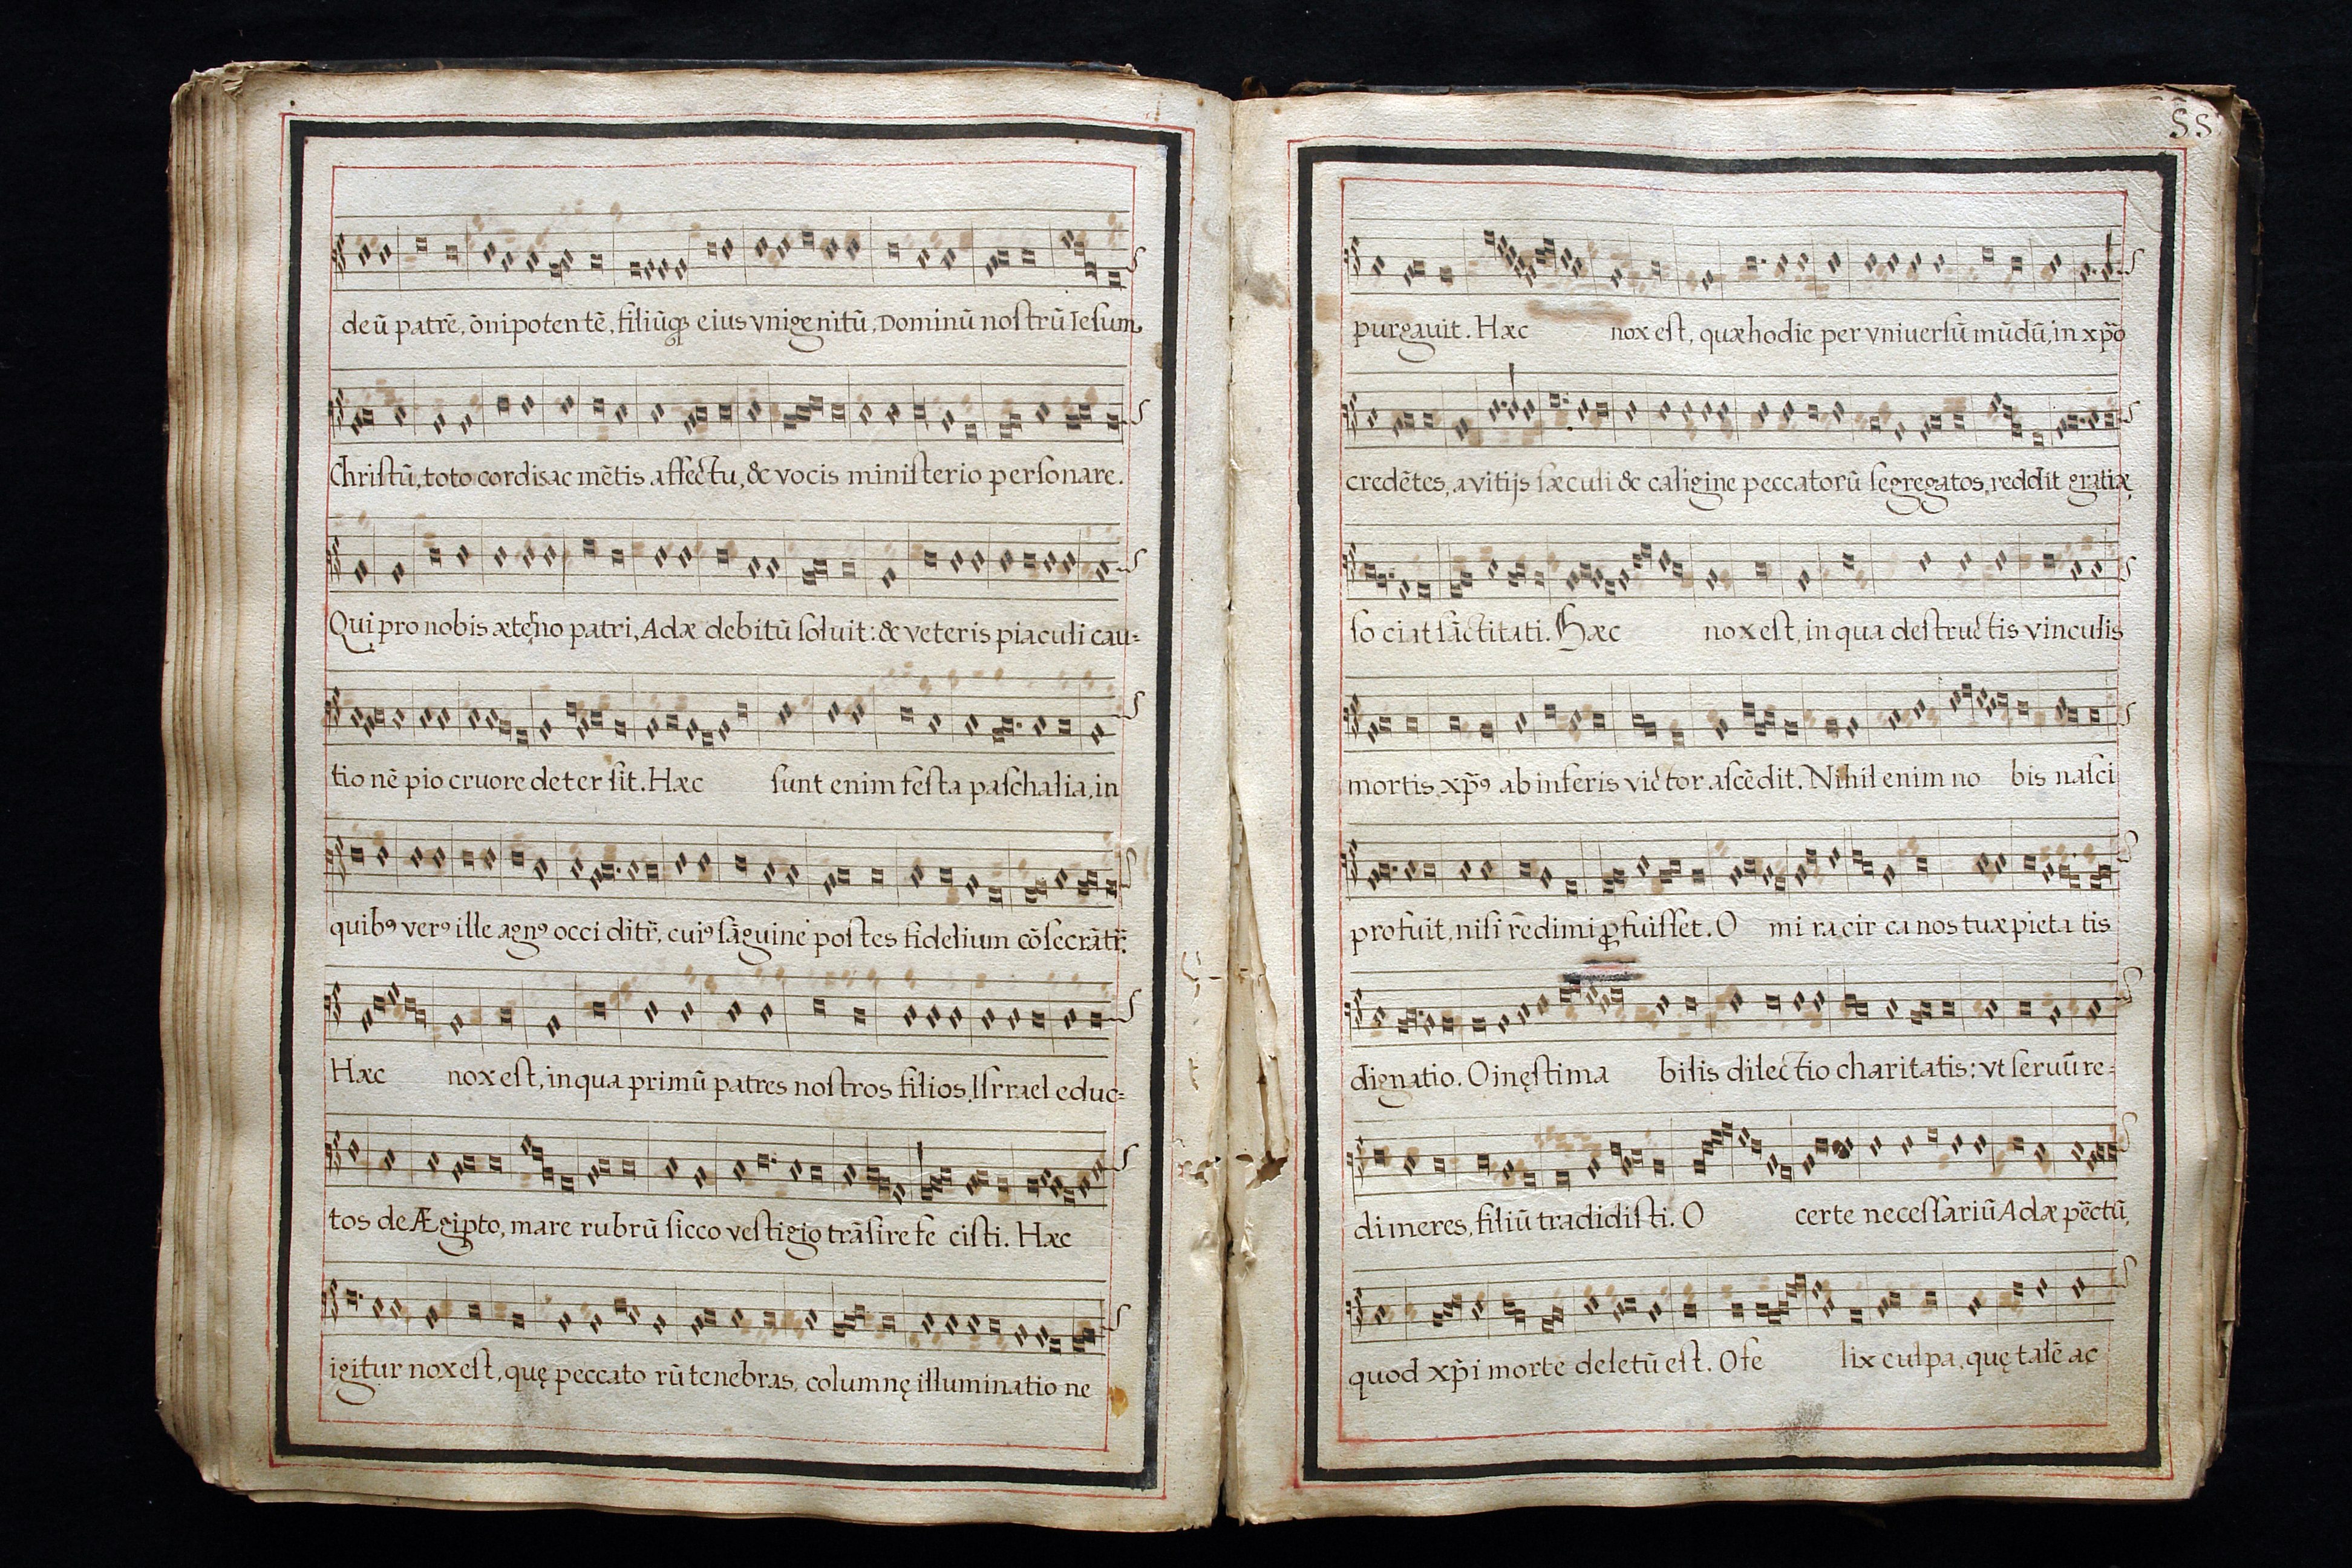 deũ patrẽ, õnipoten tẽ, filiũqȝ eius vnigenitũ, Dominũ noſtrũ Ieſum
Chriſtũ, toto cordis ac mẽtis affectu, & vocis miniſterio perſonare.
Qui pro nobis æterno patri, Adæ debitũ ſoluit: & veteris piaculi cau=
tio nẽ pio cruore deter ſit. Hæc ſunt enim feſta paſchalia, in
quibꝰ verꝰ ille agnꝰ occi ditr̃, cuiꝰ ſãguine poſtes fidelium cõſecrãtr̃.
Hæc nox eſt, in qua primũ patres noſtros filios Iſrrael educ=
tos de Ægipto, mare rubrũ ſicco veſtigio trãſire fe ciſti. Hæc
igitur nox eſt, quę peccato rũ tenebras, columnę illuminatio ne
55
purgauit. Hæc nox eſt, quæ hodie per vniuerſũ mũdũ, in xp̃o
credẽtes, a vitijs ſæculi & caligine peccatorũ ſegregatos, reddit gratiæ,
ſo ciat ſãctitati. Hæc nox eſt, in qua deſtructis vinculis
mortis, xp̃ꝰ ab inferis victor aſcẽdit. Nihil enim no bis naſci
profuit, niſi rẽdimi ꝓfuiſſet. O mi ra cir ca nos tuæ pieta tis
dignatio. O inęſtima bilis dilectio charitatis: vt ſeruũ re=
dimeres, filiũ tradidiſti. O certe neceſſariũ Adæ pẽctũ,
quod xp̃i morte deletũ eſt. O fe lix culpa, quę talẽ ac